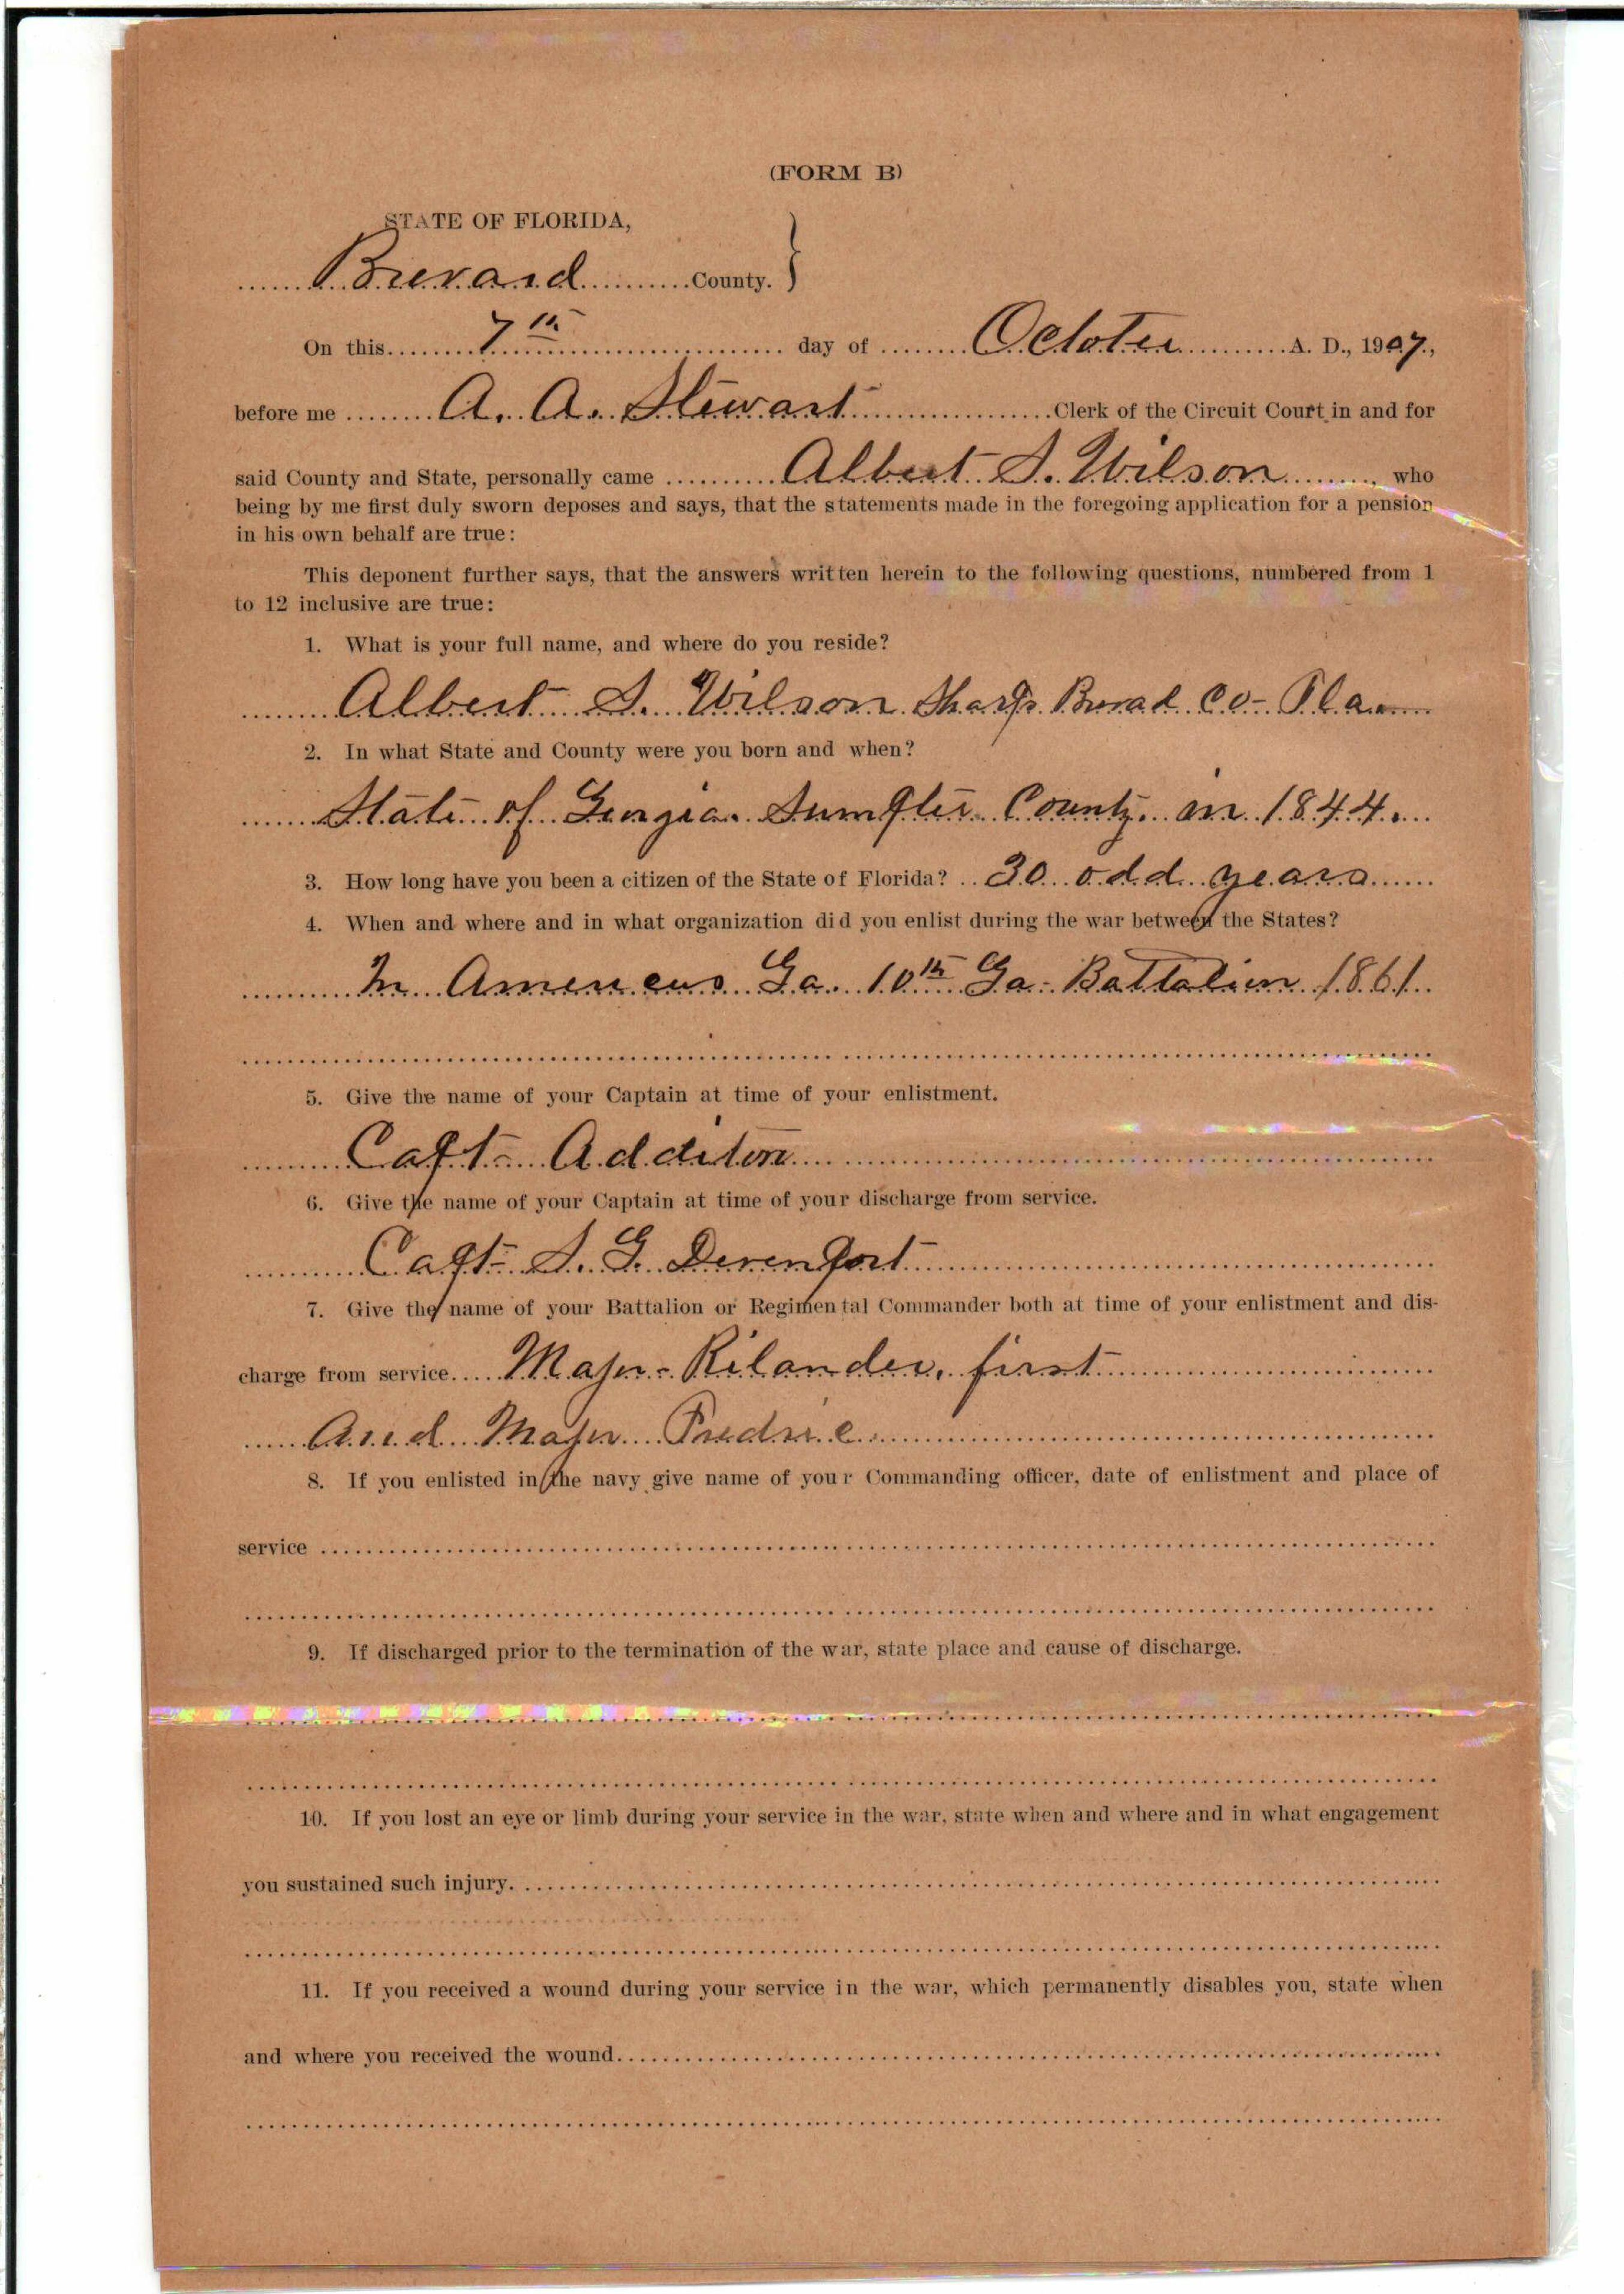 (FORM B)
STATE OF FLORIDA,
Brevard County. }
On this 7th day of October A. D., 1907,
before me A. A. Stewart Clerk of the Circuit Court in and for
said County and State, personally came Albert S. Wilson, who
being by me first duly sworn deposes and says, that the statements made in the foregoing application for a pension
in his own behalf are true:
This deponent further says, that the answers written herein to the following questions, numbered from 1
to 12 inclusive are true:
1. What is your full name, and where do you reside?
Albert S. Wilson Sharps Co- Fla
2. In what State and County were you born and when?
State of Georgia. Sumpter County. in 1844.
3. How long have you been a citizen of the State of Florida? 30 odd years
4. When and where and in what organization did you enlist during the war between the States?
In Americus Ga. 10th Ga- Battalion 1861
5. Give the name of your Captain at time of your enlistment.
Capt- Additon
6. Give the name of your Captain at time of your discharge from service.
Capt- S. G. Devenport
7. Give the name of your Battalion or Regimental Commander both at time of your enlistment and dis-
charge from service Major- Rilander, first
And Major Fredric
8. If you enlisted in the navy give name of your Commanding officer, date of enlistment and place of
service
9. If discharged prior to the termination of the war, state place and cause of discharge.
10. If you lost an eye or limb during your service in the war, state when and where and in what engagement
you sustained such injury.
11. If you received a wound during your service in the war, which permanently disables you, state when
and where you received the wound